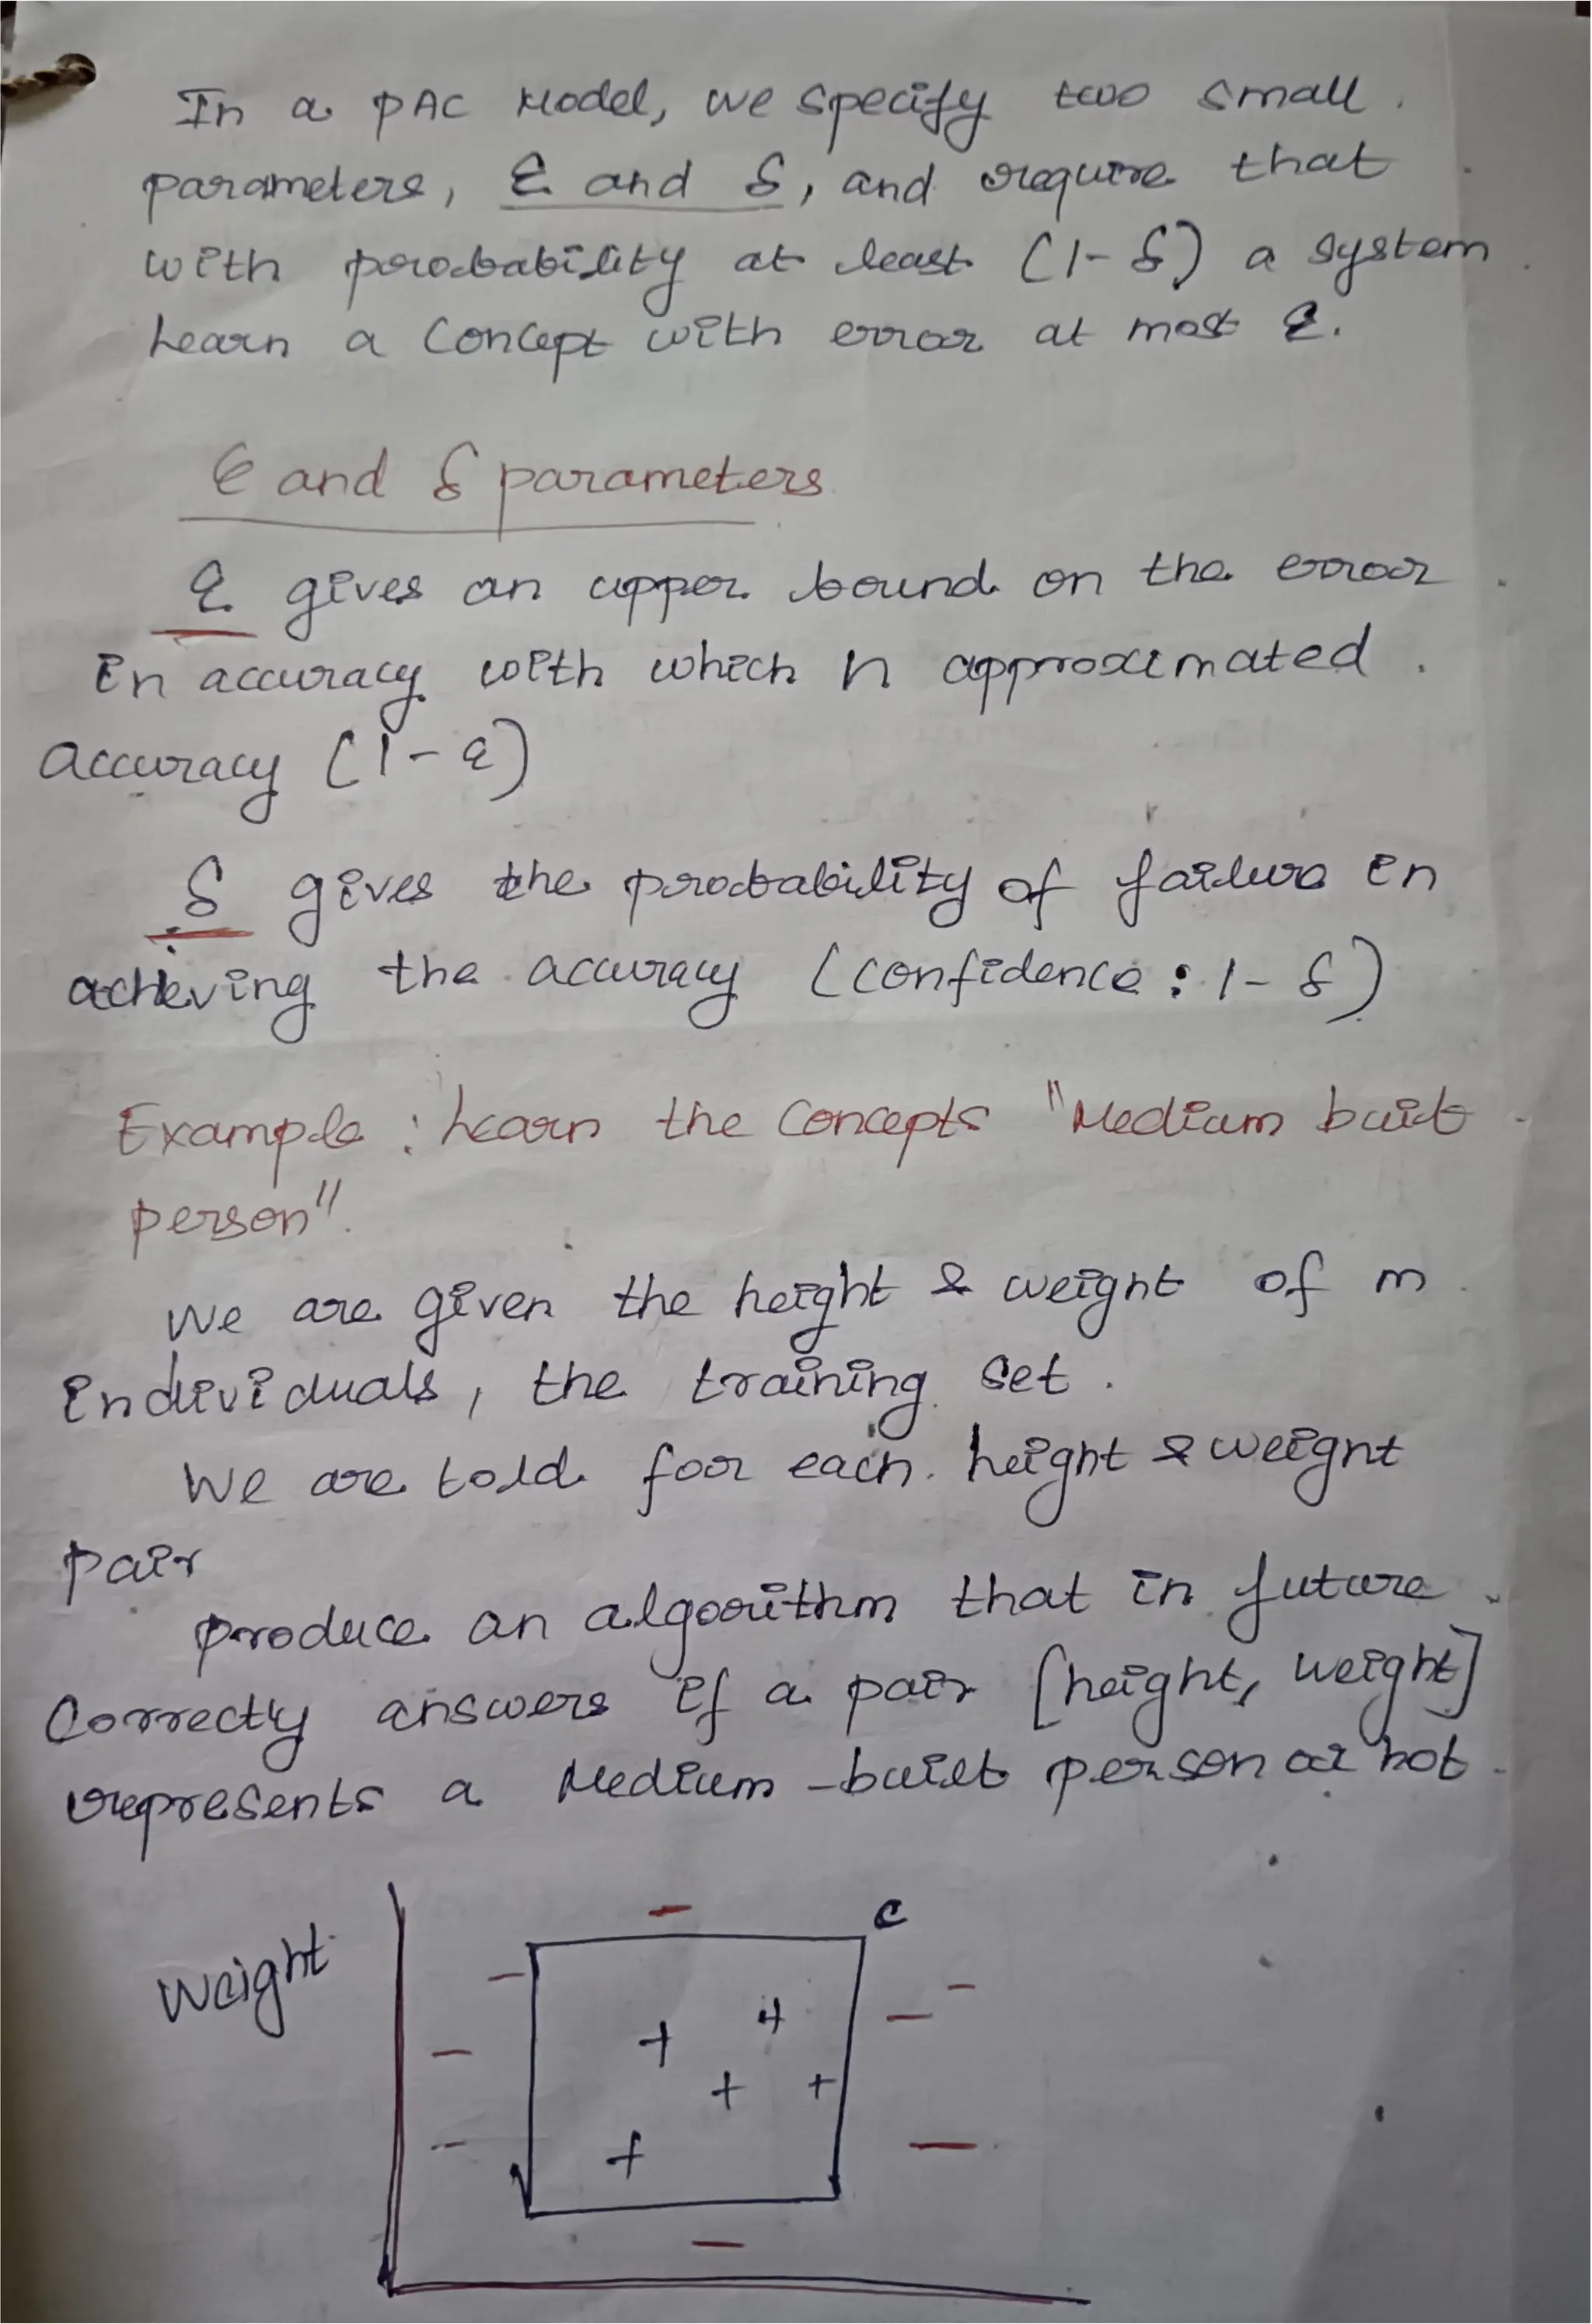 In a PAC Model, we specify two small
parameters, ε and δ, and require that
with probability at least (1-δ) a system
Learn a Concept with error at most ε.
ε and δ parameters
ε gives an upper bound on the error
in accuracy with which h approximated.
Accuracy (1-ε)
δ gives the probability of failure in
achieving the accuracy (confidence: 1-δ)
Example: Learn the Concepts "Medium built
person".
We are given the height & weight of m
individuals, the training set.
We are told for each height & weight
pair
produce an algorithm that in future
Correctly answers if a pair [height, weight]
represents a Medium-built person or not.
- C
Weight - -
+ + -
- + +
- + -
-